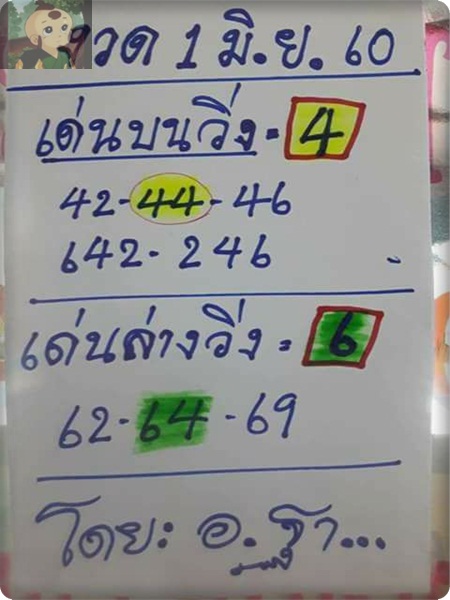 งวด 1 มิ.ย. 60
เด่นบนวิ่ง = 4
42-44-46
642-246
เด่นล่างวิ่ง = 6
62-64-69
โดย: อ.ฐา...